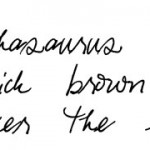 hasaurus
ick brown
er the